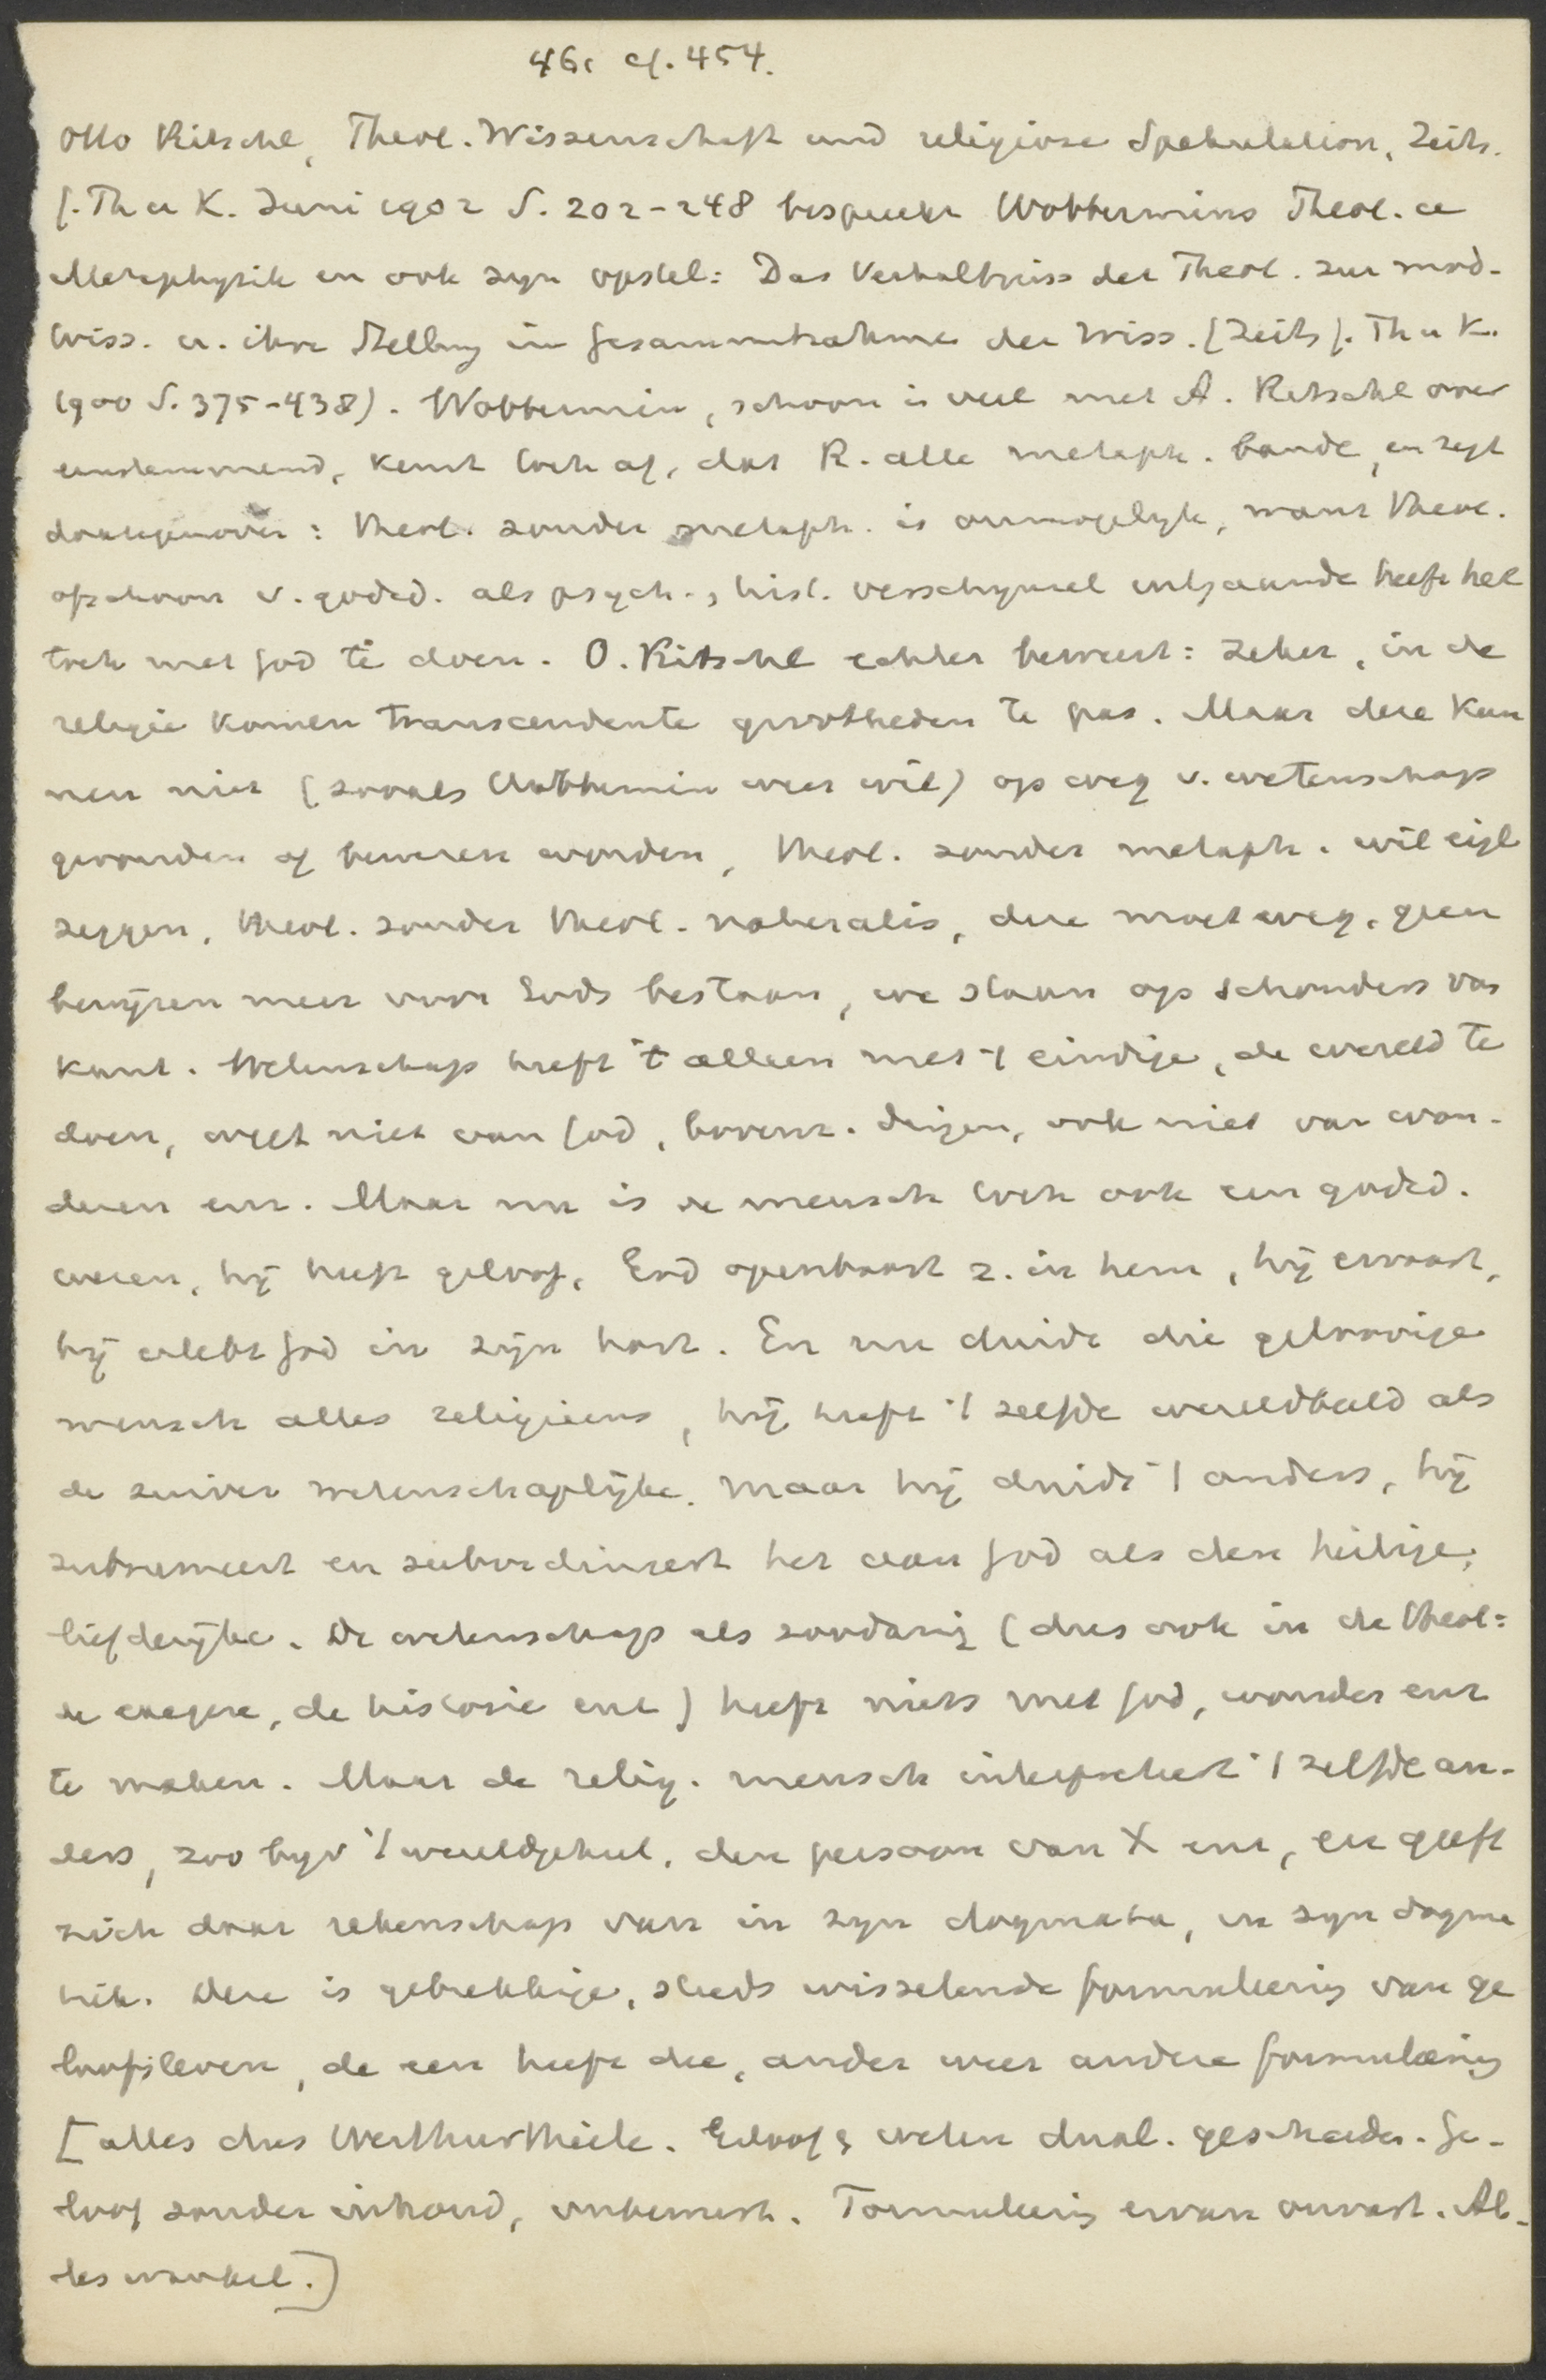 461 cf. 454.
Otto Ritschl, Theol. Wissenschaft und religiöse Spekulation, Zeits.
f. Th u K. Juni 1902 S. 202-248 bespreekt Wobbermins Theol. u
Metaphysik en ook zijn opstel: Das Verhältniss der Theol. zur mod-
Wiss. u. ihre Stellung im Gesammtrahmen der Wiss. (Zeits f. Th u K.
1900 S. 375-438). Wobbermin, schoon in veel met A. Ritschl over
eenstemmend, keurt toch af, dat R. alle metaph. bande, en zegt
daartegenover: theol. zonder metaph. is onmogelijk, want theol.
ofschoon v. godsd. als psych., hist. verschijnsel uitgaande heeft het
toch met God te doen. O. Ritschl echter beweert: Zeker, in de
religie komen transcendente grootheden te pas. Maar deze kun
nen niet (zooals Wobbermin weer wil) op weg v. wetenschap
gevonden of bewezen worden, theol. zonder metaph. wil eigl
zeggen, theol. zonder theol. naturalis, deze moet weg, geen
bewijzen meer voor Gods bestaan, we staan op schouders van
Kant. Wetenschap heeft 't alleen met 't eindige, de wereld te
doen, weet niet van God, bovenz. dingen, ook niet van won-
deren enz. Maar nu is de mensch toch ook een godsd.
wezen, hij heeft geloof, God openbaart z. in hem, hij ervaart,
hij erlebt God in zijn hart. En nu duidt die geloovige
mensch alles religieus, hij heeft 't zelfde wereldbeeld als
de zuiver wetenschaplijke. Maar hij duidt 't anders, hij
subsumeert en subordineert het aan God als den heilige,
liefderijke. De wetenschap als zoodanig (dus ook in de theol:
de exegese, de historie enz) heeft niets met God, wonder enz
te maken. Maar de relig. mensch interpreteert 't zelfde an-
ders, zoo bijv 't wereldgeheel, den persoon van X enz, en geeft
zich daar rekenschap van in zijn dogmata, in zijn dogma
tiek. Deze is gebrekkige, steeds wisselende formuleering van ge
loofsleven, de een heeft die, ander weer andere formuleering
[alles dus Werthurtheile. Geloof & weten dual. gescheiden. Ge-
loof zonder inhoud, onbewust. Formuleering ervan onvast. Al-
les wankel.]